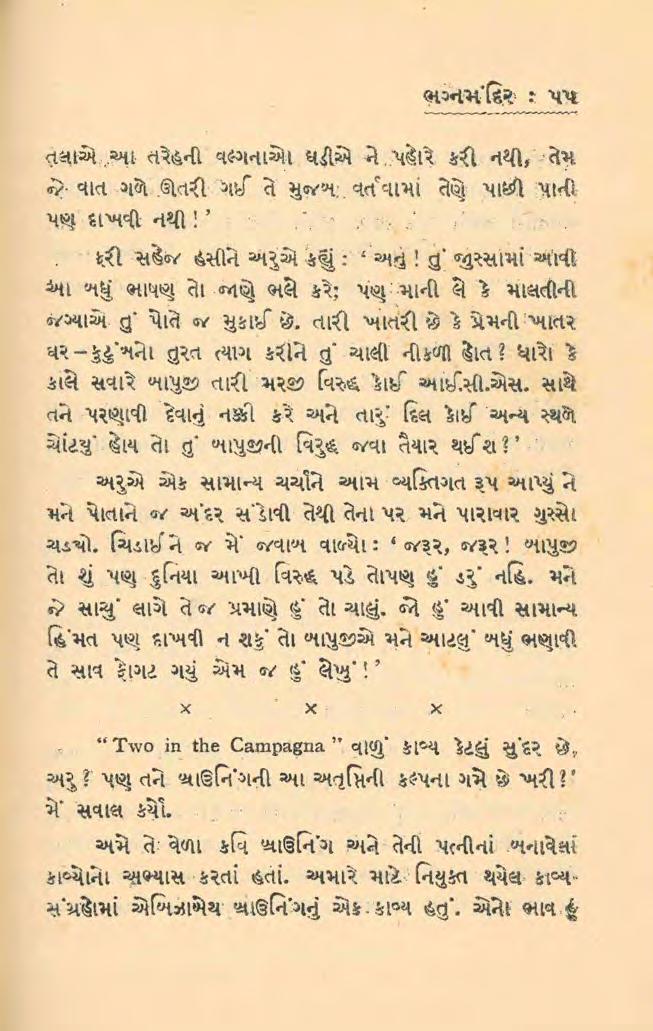 ભગ્નમંદિર : ૫૫
તલાએ આ તરેહની વલ્ગનાઓ ઘડીએ ને પહોરે કરી નથી, તેમ
જે વાત ગળે ઊતરી ગઈ તે મુજબ વર્તવામાં તેણે પાછી પાની
પણ દાખવી નથી ! ’
ફરી સહેજ હસીને અરુએ કહ્યું : ‘ અનુ ! તું જુસ્સામાં આવી
આ બધું ભાષણ તો જાણે ભલે કરે; પણ માની લે કે માલતીની
જગ્યાએ તું પોતે જ મુકાઈ છે. તારી ખાતરી છે કે પ્રેમની ખાતર
ઘર – કુટુંબનો તુરત ત્યાગ કરીને તું ચાલી નીકળી હોત ? ધારો કે
કાલે સવારે બાપુજી તારી મરજી વિરુદ્ધ કોઈ આઈ.સી.એસ. સાથે
તને પરણાવી દેવાનું નક્કી કરે અને તારું દિલ કોઈ અન્ય સ્થળે
ચોંટયું હોય તો તું બાપુજીની વિરુદ્ધ જવા તૈયાર થઈશ ? ’
અરુએ એક સામાન્ય ચર્ચાને આમ વ્યક્તિગત રૂપ આપ્યું ને
મને પોતાને જ અંદર સંડોવી તેથી તેના પર મને પારાવાર ગુસ્સો
ચડયો. ચિડાઈને જ મેં જવાબ વાળ્યો : ‘ જરૂર, જરૂર ! બાપુજી
તો શું પણ દુનિયા આખી વિરુદ્ધ પડે તોપણ હું ડરું નહિ. મને
જે સાચું લાગે તે જ પ્રમાણે હું તો ચાલું. જો હું આવી સામાન્ય
હિંમત પણ દાખવી ન શકું તો બાપુજીએ મને આટલું બધું ભણાવી
તે સાવ ફોગટ ગયું એમ જ હું લેખું ! ’
× × ×
“ Two in the Campagna ” વાળું કાવ્ય કેટલું સુંદર છે,
અરુ ? પણ તને બ્રાઉનિંગની આ અતૃપ્તિની કલ્પના ગમે છે ખરી ? ’
મેં સવાલ કર્યો.
અમે તે વેળા કવિ બ્રાઉનિંગ અને તેની પત્નીનાં બનાવેલાં
કાવ્યોનો અભ્યાસ કરતાં હતાં. અમારે માટે નિયુક્ત થયેલ કાવ્ય-
સંગ્રહોમાં એલિઝાબેથ બ્રાઉનિંગનું એક કાવ્ય હતું. એનો ભાવ હું